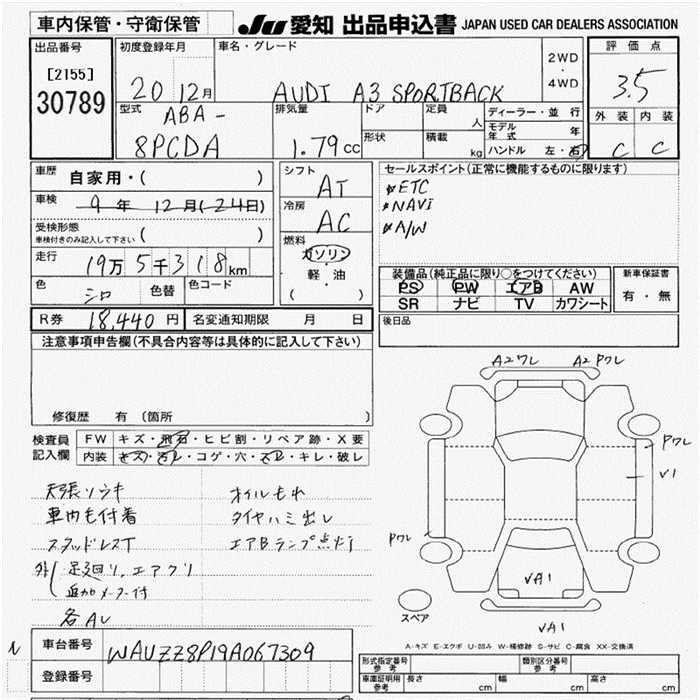 車内保管・守衛保管
JU 愛知 出品申込書 JAPAN USED CAR DEALERS ASSOCIATION
出品番号
[2155]
30789
初度登録年月
20 12月
車名・グレード
AUDI A3 SPORTBACK
2WD
・
4WD
評価点
3.5
外装 内装
C C
型式
ABA-
8PCDA
排気量
1.79cc
ドア
形状
定員
人
積載
kg
ディーラー・並行
モデル年式 年
ハンドル 左・右
車歴
自家用・( )
車検
9年 12月(24日)
受検形態
車検付きのみ記入して下さい ( )
走行
19万5千318km
色
シロ
色替
色コード
シフト
AT
冷房
AC
燃料
ガソリン
・
軽・油
( )
セールスポイント(正常に機能するものに限ります)
ETC
NAVI
A/W
装備品(純正品に限り○をつけてください)
PS PW エアB AW
SR ナビ TV カワシート
新車保証書
有・無
後日品
R券 18,440円
名変通知期限 月 日
注意事項申告欄(不具合内容等は具体的に記入して下さい)
修復歴 有 (箇所
検査員
記入欄
FW キズ・飛石・ヒビ割・リペア跡・X要
内装 キズ・汚レ・コゲ・穴・スレ・キレ・破レ
天張ソウキ
車内毛付着
スタッドレスT
外
足廻り、エアクリ
追加メーター付
各AL
オイルもれ
タイヤハミ出し
エアBランプ点灯
A2ワレ A2Pワレ
Pワレ
V1
Pワレ
VA1
スペア
VA1
A-キズ E-エクボ U-凹み W-補修跡 S-サビ C-腐食 XX-交換済
車台番号
WAUZZZ8P19A067309
登録番号
形式指定番号
参考
類別区分番号
参考
車庫証明用
参考
長さ cm
幅 cm
高さ cm